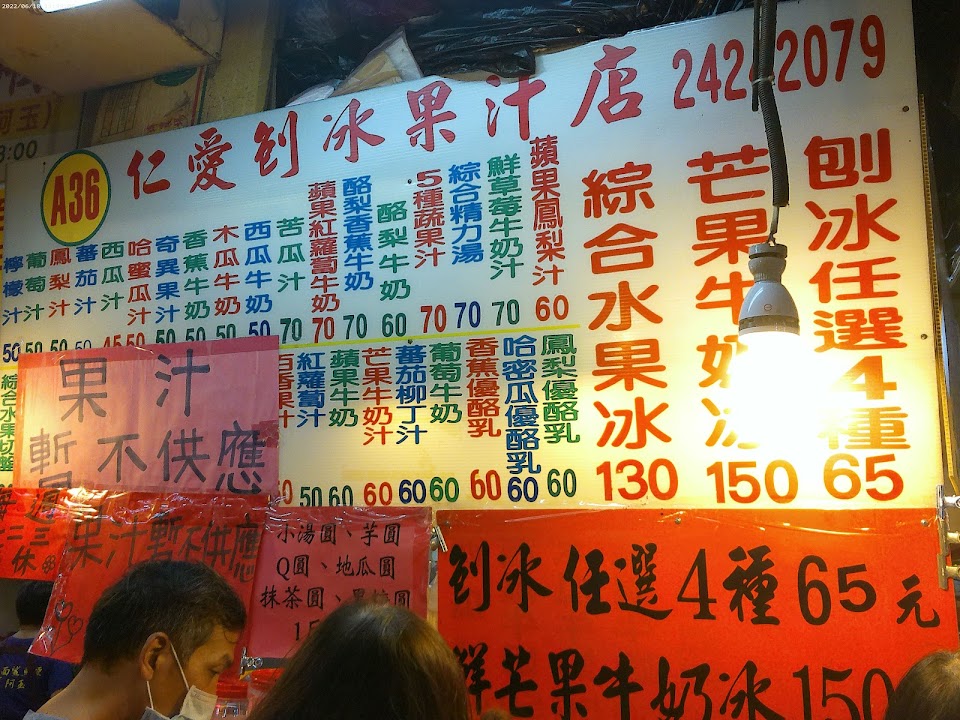 2022/06/18
阿玉)
8:00
A36
仁愛刨冰果汁店 2424 2079
檸檬汁 50
葡萄汁 50
鳳梨汁 50
蕃茄汁 50
西瓜汁 45
哈蜜瓜汁 50
奇異果汁 50
香蕉牛奶 50
木瓜牛奶 50
西瓜牛奶 50
苦瓜汁 70
蘋果紅蘿蔔牛奶 70
酪梨香蕉牛奶 70
酪梨牛奶 60
5種蔬果汁 70
綜合精力湯 70
鮮草莓牛奶汁 70
蘋果鳳梨汁 60
綜合水果切盤
百香果汁
紅蘿蔔汁 50
蘋果牛奶 60
芒果牛奶汁 60
蕃茄柳丁汁 60
葡萄牛奶 60
香蕉優酪乳 60
哈密瓜優酪乳 60
鳳梨優酪乳 60
綜合水果冰 130
芒果牛奶冰 150
刨冰任選4種 65
果汁
暫不供應
果汁暫不供應
小湯圓、芋圓
Q圓、地瓜圓
抹茶圓、黑糖圓
刨冰任選4種65元
鮮芒果牛奶冰150
阿玉